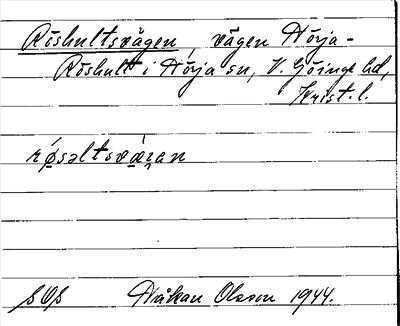 Röshultsvägen, vägen Nörja-
Röshult i Nörja sn, V. Göinge hd,
Krist. l.
røsəltsvąʹꞃan
SOS Håkan Olsson 1944.